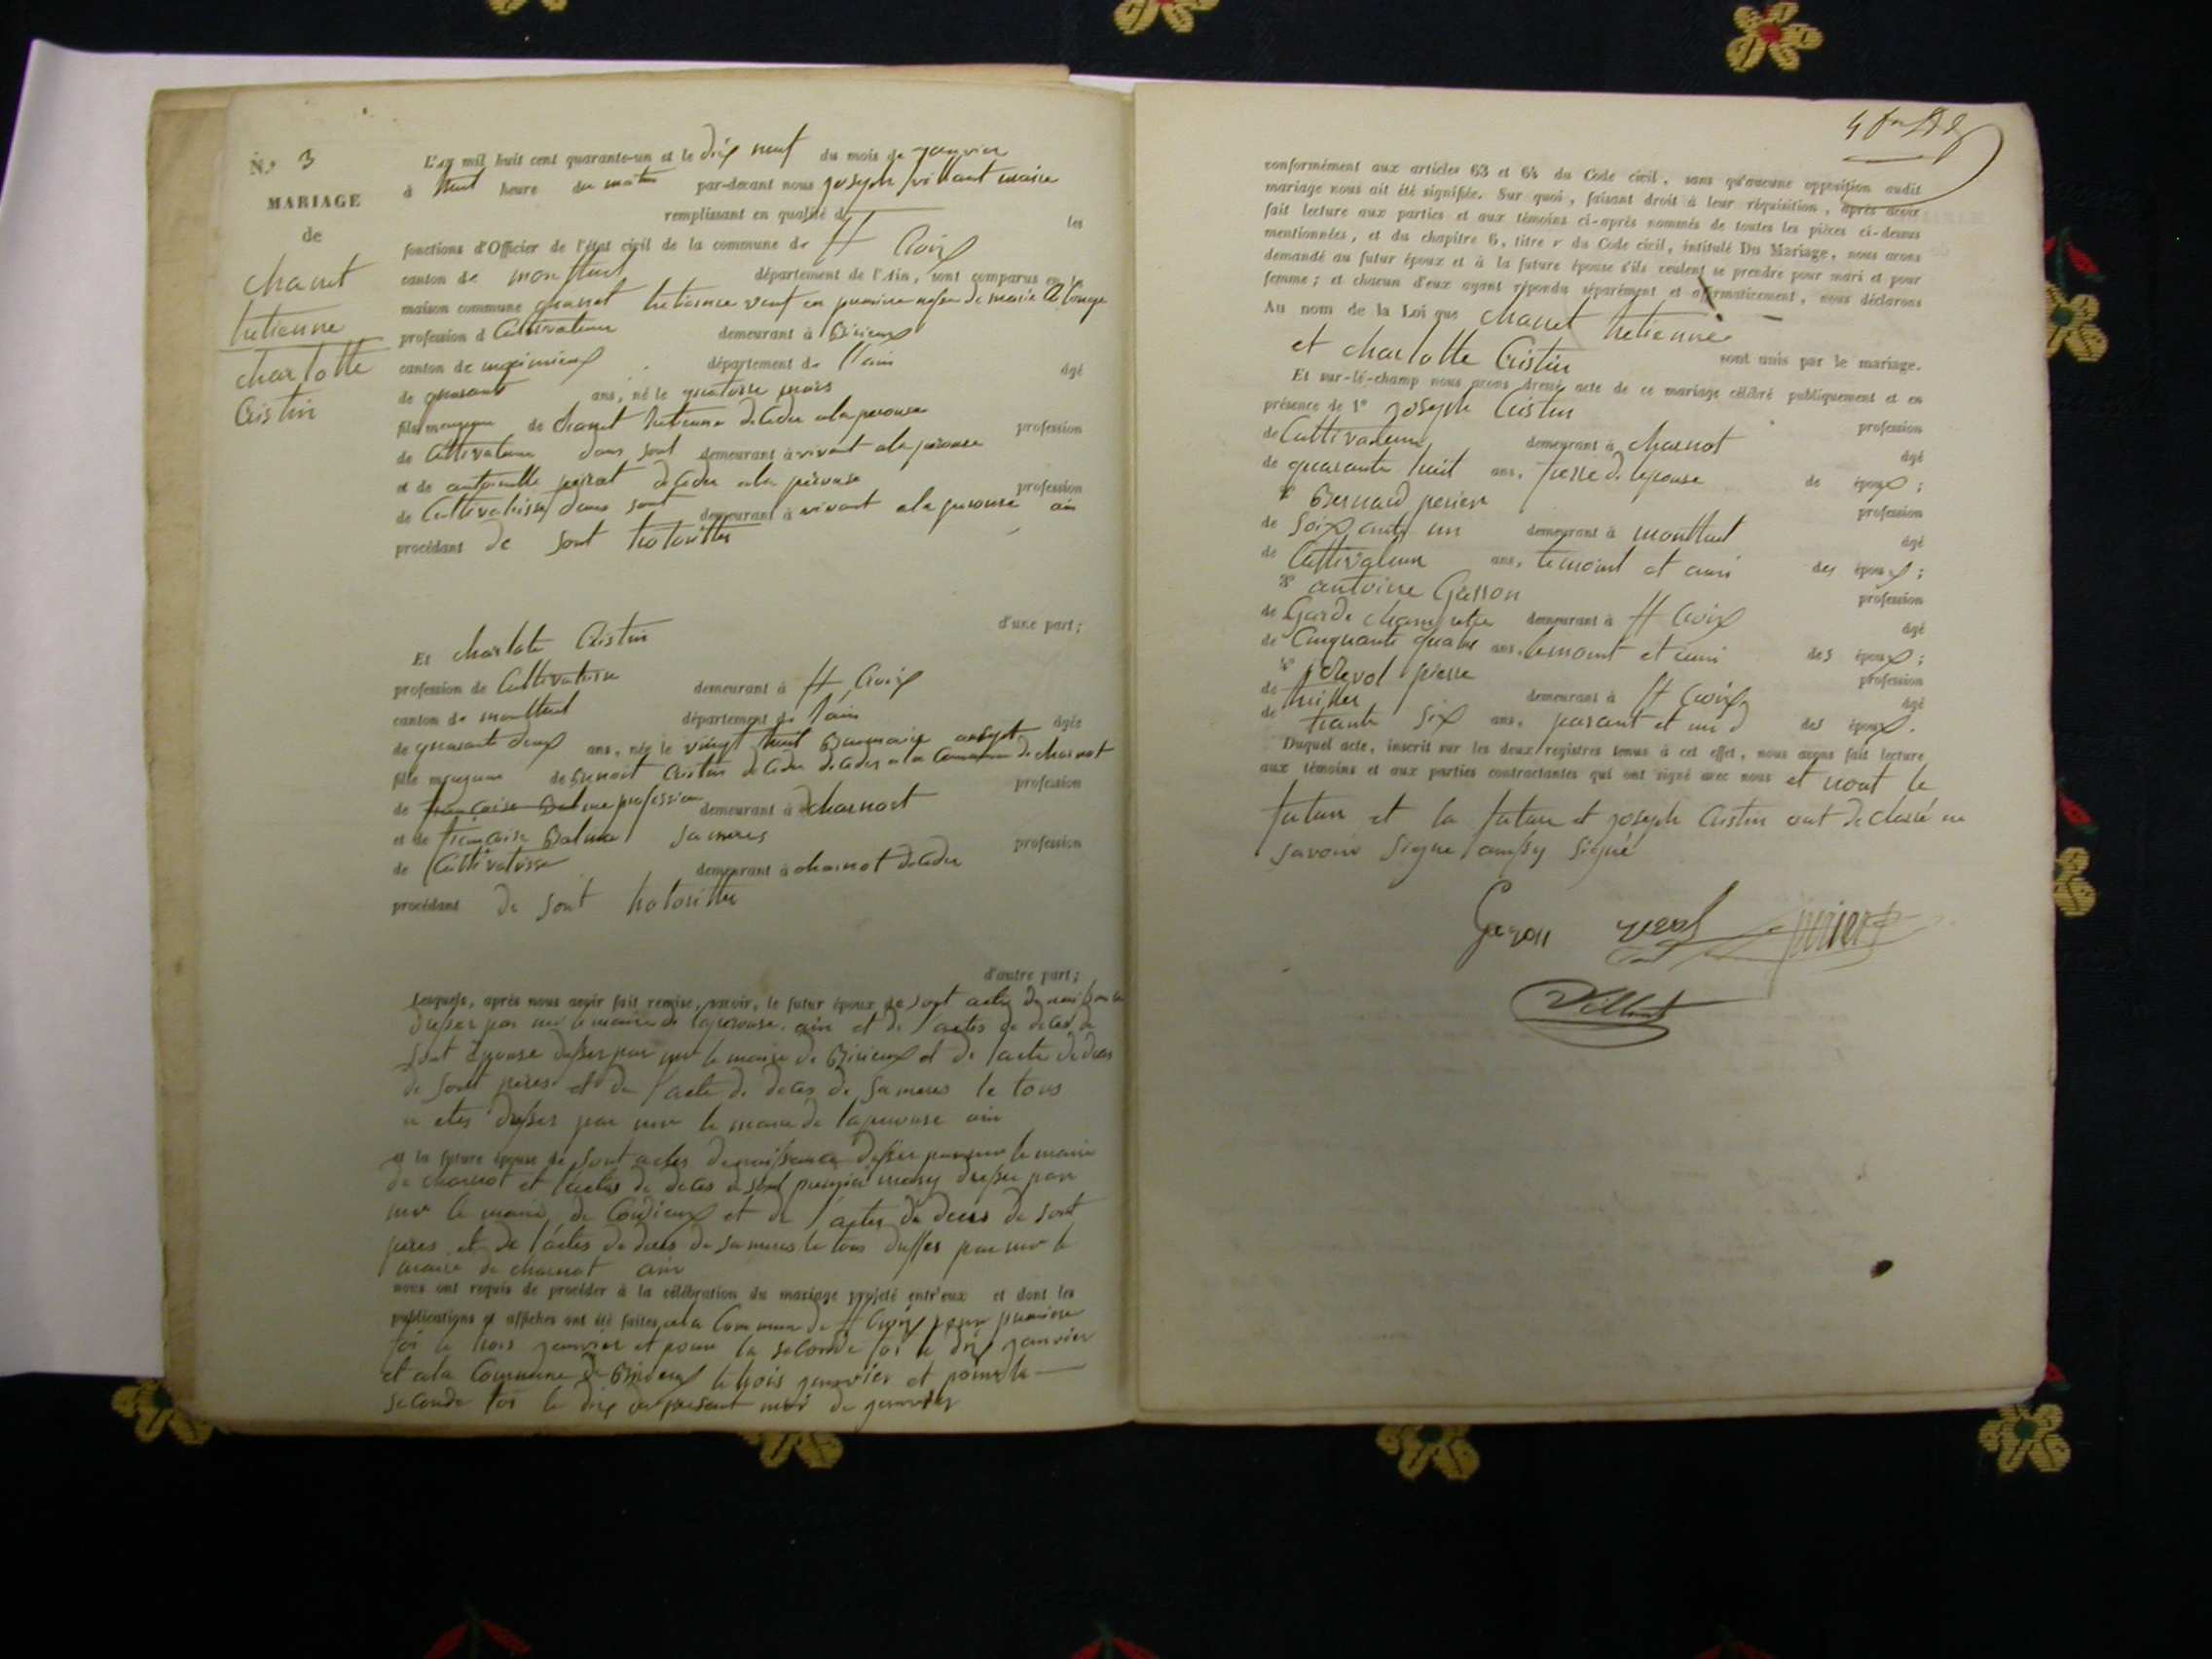 N.° 3
MARIAGE
de
chanet
hetienne
charlotte
Cristin
L'an mil huit cent quarante-un et le dix neuf du mois de janvier
à huit heure du matin par-devant nous joseph villant maire
remplissant en qualité d les
fonctions d'Officier de l'état civil de la commune de st Croix
canton de montluel département de l'Ain, sont comparus en la
maison commune chanet hetienne veuf en premiere de marie
profession d Cultivateur demeurant à Birieux
canton de meximieux département de l'ain âgé
de quarant ans, né le quatorze mars
fils de chanet hetienne décéder a la perouse profession
de Cultivateur dans sont demeurant à vivant a la perouse
et de antoinette décéder a la pérouse profession
de Cultivatrisse dans sont demeurant à vivant a la perouse ain
procédant de sont
d'une part;
Et charlote Cristin
profession de Cultivatrise demeurant à st Croix
canton de montluel département de l'ain âgée
de quarante deux ans, née le vingt huit
fille de Benoit Cristin décéder a la Commune de charnot profession
de profession demeurant à charnost
et de francoise Balme sa meres profession
de Cultivatrisse demeurant à charnot décéder
procédant de sont
d'autre part;
Lesquels, après nous avoir fait remise, savoir, le futur époux de sont actes de naissance
dresser par mr le maire de laperouse ain et de l'actes de déces de
sont épouse dresser par mr le maire de Birieux et de l'acte de deces
de sont peres et de l'acte de deces de sa meres le tous
a etes dresser par mr le maire de laperouse ain
et la future épouse de sont actes de naissance dresser par mr le maire
de charnot et l'actes de deces de sont premier mary dresser par
mr le maire de Cordieux et de l'actes de deces de sont
peres et de l'actes de deces de sa meres le tous dresser par mr le
maire de charnot ain
nous ont requis de procéder à la célébration du mariage projeté entr'eux et dont les
publications et affiches ont été faites a la Commune de st Croix pour premiere
foi le trois janvier et pour la seconde foi le dix janvier
et a la Commune de Birieux le trois janvier et pour la
seconde foi le dix du présent moi de janvier
conformément aux articles 63 et 64 du Code civil, sans qu'aucune opposition audit
mariage nous ait été signifiée. Sur quoi, faisant droit à leur réquisition, après avoir
fait lecture aux parties et aux témoins ci-après nommés de toutes les pièces ci-dessus
mentionnées, et du chapitre 6, titre v du Code civil, intitulé Du Mariage, nous avons
demandé au futur époux et à la future épouse s'ils veulent se prendre pour mari et pour
femme; et chacun d'eux ayant répondu séparément et affirmativement, nous déclarons
Au nom de la Loi que chanet hetienne
et charlotte Cristin sont unis par le mariage.
Et sur-le-champ nous avons dressé acte de ce mariage célébré publiquement et en
présence de 1° joseph Cristin profession
de Cultivateur demeurant à charnot âgé
de quarante huit ans, frerre de lepouse de époux;
2° Bernard perier profession
de soixante un demeurant à montluel âgé
de Cultivateur ans, temoint et ami des époux;
3° antoine Gasson profession
de Garde champetre demeurant à st Croix âgé
de Cinquante quatre ans, temoint et ami des époux;
4° pierre profession
de demeurant à st Croix âgé
de trante six ans, parant et des époux.
Duquel acte, inscrit sur les deux registres tenus à cet effet, nous avons fait lecture
aux témoins et aux parties contractantes qui ont signé avec nous et nont le
futur et la future et joseph Cristin ont déclaré ne
savoir signe signé
Gazon perier
Villant